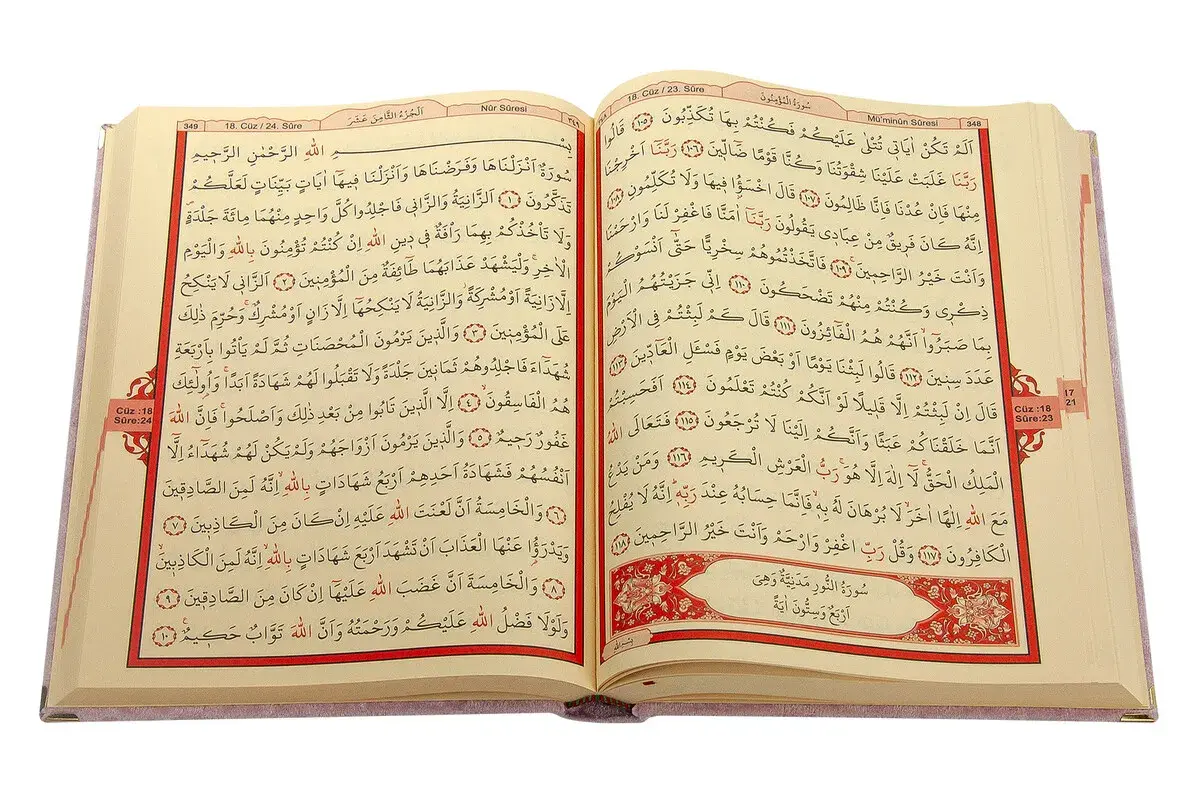 18. Cüz / 23. Sûre
سُورَةُ الْمُؤْمِنُونَ
Mü'minûn Sûresi
348
اَلَمْ تَكُنْ اٰيَاتٖي تُتْلٰى عَلَيْكُمْ فَكُنْتُمْ بِهَا تُكَذِّبُونَ ﴿١٠٥﴾ قَالُوا
رَبَّنَا غَلَبَتْ عَلَيْنَا شِقْوَتُنَا وَكُنَّا قَوْمًا ضَٓالّٖينَ ﴿١٠٦﴾ رَبَّنَٓا اَخْرِجْنَا
مِنْهَا فَاِنْ عُدْنَا فَاِنَّا ظَالِمُونَ ﴿١٠٧﴾ قَالَ اخْسَؤُ۫ا فٖيهَا وَلَا تُكَلِّمُونِ ﴿١٠٨﴾
اِنَّهُ كَانَ فَرٖيقٌ مِنْ عِبَادٖي يَقُولُونَ رَبَّنَٓا اٰمَنَّا فَاغْفِرْ لَنَا وَارْحَمْنَا
وَاَنْتَ خَيْرُ الرَّاحِمٖينَۚ ﴿١٠٩﴾ فَاتَّخَذْتُمُوهُمْ سِخْرِيًّا حَتّٰٓى اَنْسَوْكُمْ
ذِكْرٖي وَكُنْتُمْ مِنْهُمْ تَضْحَكُونَ ﴿١١٠﴾ اِنّٖي جَزَيْتُهُمُ الْيَوْمَ
بِمَا صَبَرُٓوا اَنَّهُمْ هُمُ الْفَٓائِزُونَ ﴿١١١﴾ قَالَ كَمْ لَبِثْتُمْ فِي الْاَرْضِ
عَدَدَ سِنٖينَ ﴿١١٢﴾ قَالُوا لَبِثْنَا يَوْمًا اَوْ بَعْضَ يَوْمٍ فَسْـَٔلِ الْعَٓادّٖينَ ﴿١١٣﴾
قَالَ اِنْ لَبِثْتُمْ اِلَّا قَلٖيلًا لَوْ اَنَّكُمْ كُنْتُمْ تَعْلَمُونَ ﴿١١٤﴾ اَفَحَسِبْتُمْ
اَنَّمَا خَلَقْنَاكُمْ عَبَثًا وَاَنَّكُمْ اِلَيْنَا لَا تُرْجَعُونَ ﴿١١٥﴾ فَتَعَالَى اللّٰهُ
الْمَلِكُ الْحَقُّۚ لَٓا اِلٰهَ اِلَّا هُوَۚ رَبُّ الْعَرْشِ الْكَرٖيمِ ﴿١١٦﴾ وَمَنْ يَدْعُ
مَعَ اللّٰهِ اِلٰهًا اٰخَرَۙ لَا بُرْهَانَ لَهُ بِهٖۙ فَاِنَّمَا حِسَابُهُ عِنْدَ رَبِّهٖۜ اِنَّهُ لَا يُفْلِحُ
الْكَافِرُونَ ﴿١١٧﴾ وَقُلْ رَبِّ اغْفِرْ وَارْحَمْ وَاَنْتَ خَيْرُ الرَّاحِمٖينَ ﴿١١٨﴾
سُورَةُ النُّورِ مَدَنِيَّةٌ وَهِيَ
اَرْبَعٌ وَسِتُّونَ اٰيَةً
Cüz :18
Sûre:23
17
21
349
18. Cüz / 24. Sûre
اَلْجُزْءُ الثَّامِنَ عَشَرَ
Nûr Sûresi
٣٤٩
بِسْمِ اللّٰهِ الرَّحْمٰنِ الرَّحٖيمِ
سُورَةٌ اَنْزَلْنَاهَا وَفَرَضْنَاهَا وَاَنْزَلْنَا فٖيهَٓا اٰيَاتٍ بَيِّنَاتٍ لَعَلَّكُمْ
تَذَكَّرُونَ ﴿١﴾ اَلزَّانِيَةُ وَالزَّانٖي فَاجْلِدُوا كُلَّ وَاحِدٍ مِنْهُمَا مِائَةَ جَلْدَةٍۖ
وَلَا تَأْخُذْكُمْ بِهِمَا رَأْفَةٌ فٖي دٖينِ اللّٰهِ اِنْ كُنْتُمْ تُؤْمِنُونَ بِاللّٰهِ وَالْيَوْمِ
الْاٰخِرِۚ وَلْيَشْهَدْ عَذَابَهُمَا طَٓائِفَةٌ مِنَ الْمُؤْمِنٖينَ ﴿٢﴾ اَلزَّانٖي لَا يَنْكِحُ
اِلَّا زَانِيَةً اَوْ مُشْرِكَةًۘ وَالزَّانِيَةُ لَا يَنْكِحُهَٓا اِلَّا زَانٍ اَوْ مُشْرِكٌۚ وَحُرِّمَ ذٰلِكَ
عَلَى الْمُؤْمِنٖينَ ﴿٣﴾ وَالَّذٖينَ يَرْمُونَ الْمُحْصَنَاتِ ثُمَّ لَمْ يَأْتُوا بِاَرْبَعَةِ
شُهَدَٓاءَ فَاجْلِدُوهُمْ ثَمَانٖينَ جَلْدَةً وَلَا تَقْبَلُوا لَهُمْ شَهَادَةً اَبَدًاۚ وَاُو۬لٰٓئِكَ
هُمُ الْفَاسِقُونَۙ ﴿٤﴾ اِلَّا الَّذٖينَ تَابُوا مِنْ بَعْدِ ذٰلِكَ وَاَصْلَحُواۚ فَاِنَّ اللّٰهَ
غَفُورٌ رَحٖيمٌ ﴿٥﴾ وَالَّذٖينَ يَرْمُونَ اَزْوَاجَهُمْ وَلَمْ يَكُنْ لَهُمْ شُهَدَٓاءُ اِلَّٓا
اَنْفُسُهُمْ فَشَهَادَةُ اَحَدِهِمْ اَرْبَعُ شَهَادَاتٍ بِاللّٰهِۙ اِنَّهُ لَمِنَ الصَّادِقٖينَ
﴿٦﴾ وَالْخَامِسَةُ اَنَّ لَعْنَتَ اللّٰهِ عَلَيْهِ اِنْ كَانَ مِنَ الْكَاذِبٖينَ ﴿٧﴾
وَيَدْرَؤُ۬ا عَنْهَا الْعَذَابَ اَنْ تَشْهَدَ اَرْبَعَ شَهَادَاتٍ بِاللّٰهِۙ اِنَّهُ لَمِنَ الْكَاذِبٖينَۙ
﴿٨﴾ وَالْخَامِسَةَ اَنَّ غَضَبَ اللّٰهِ عَلَيْهَٓا اِنْ كَانَ مِنَ الصَّادِقٖينَ ﴿٩﴾
وَلَوْلَا فَضْلُ اللّٰهِ عَلَيْكُمْ وَرَحْمَتُهُ وَاَنَّ اللّٰهَ تَوَّابٌ حَكٖيمٌ۟ ﴿١٠﴾
Cüz :18
Sûre:24